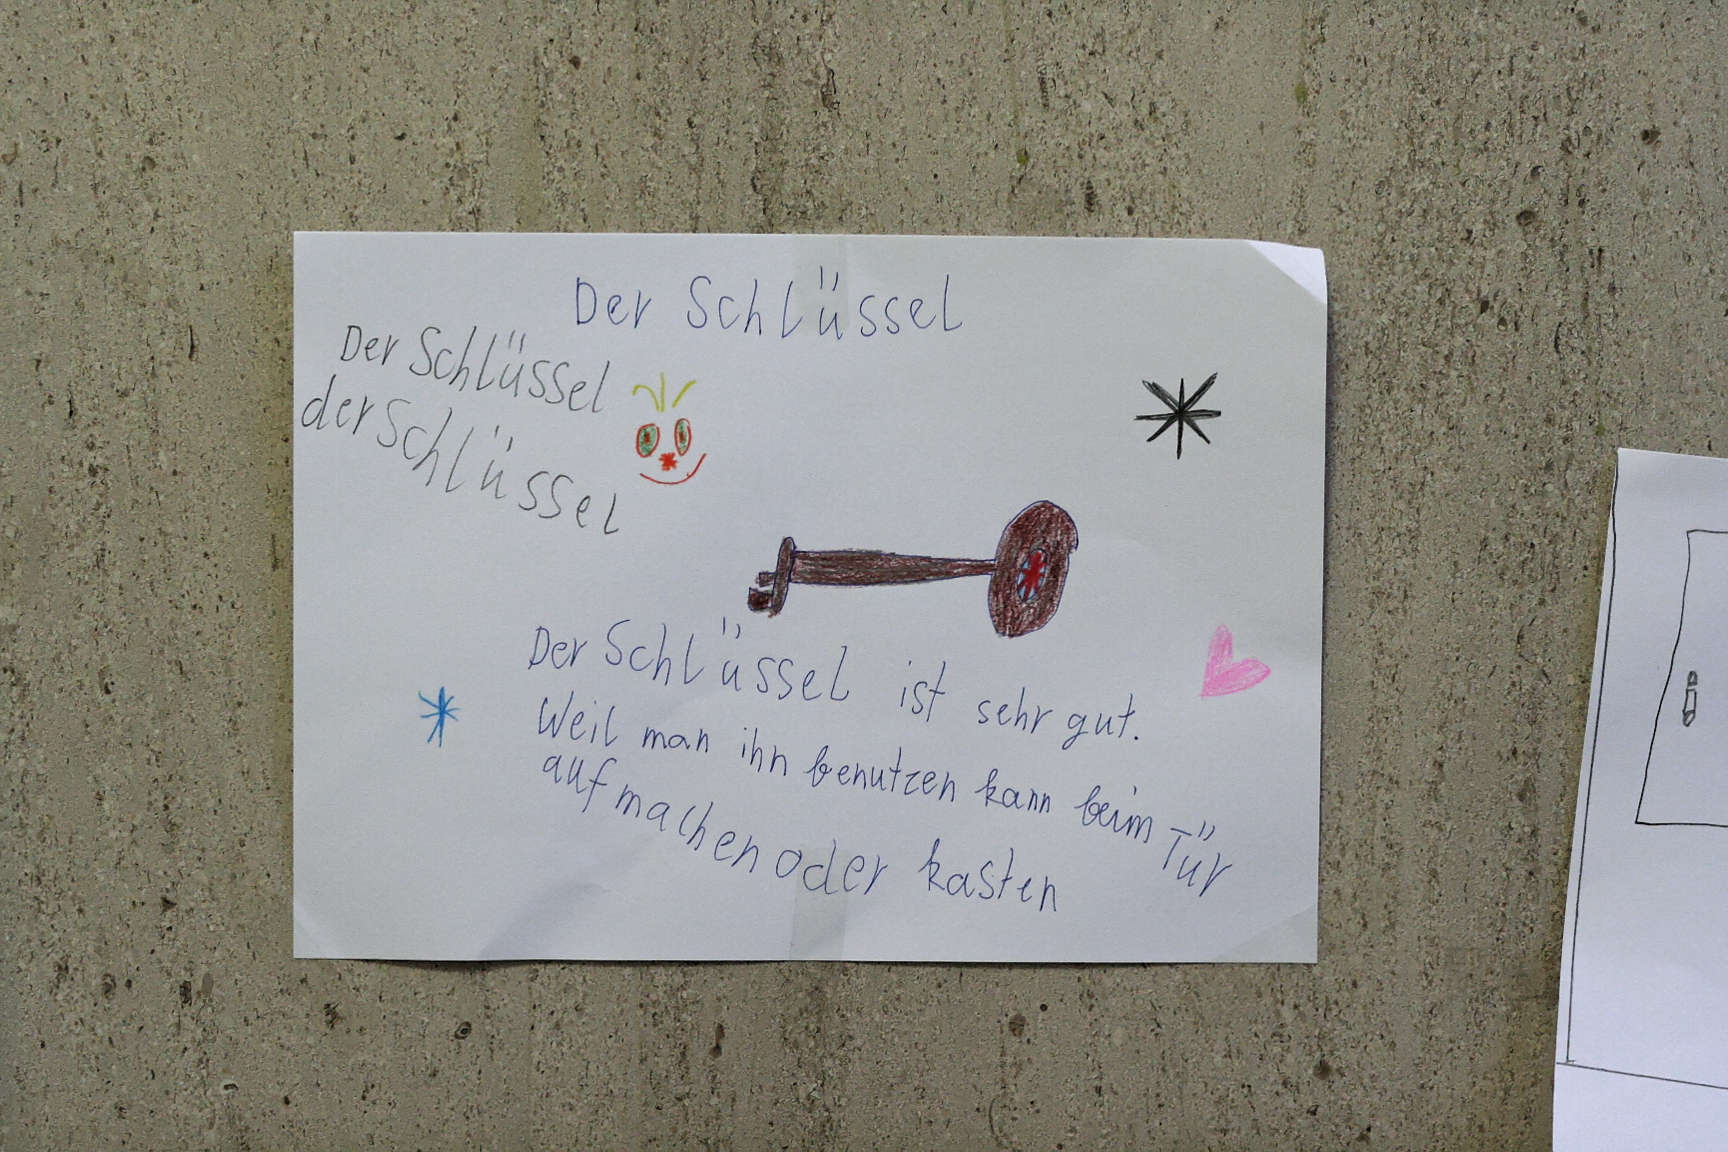 Der Schlüssel
Der Schlüssel
der Schlüssel
Der Schlüssel ist sehr gut.
Weil man ihn benutzen kann beim Tür
aufmachen oder kasten